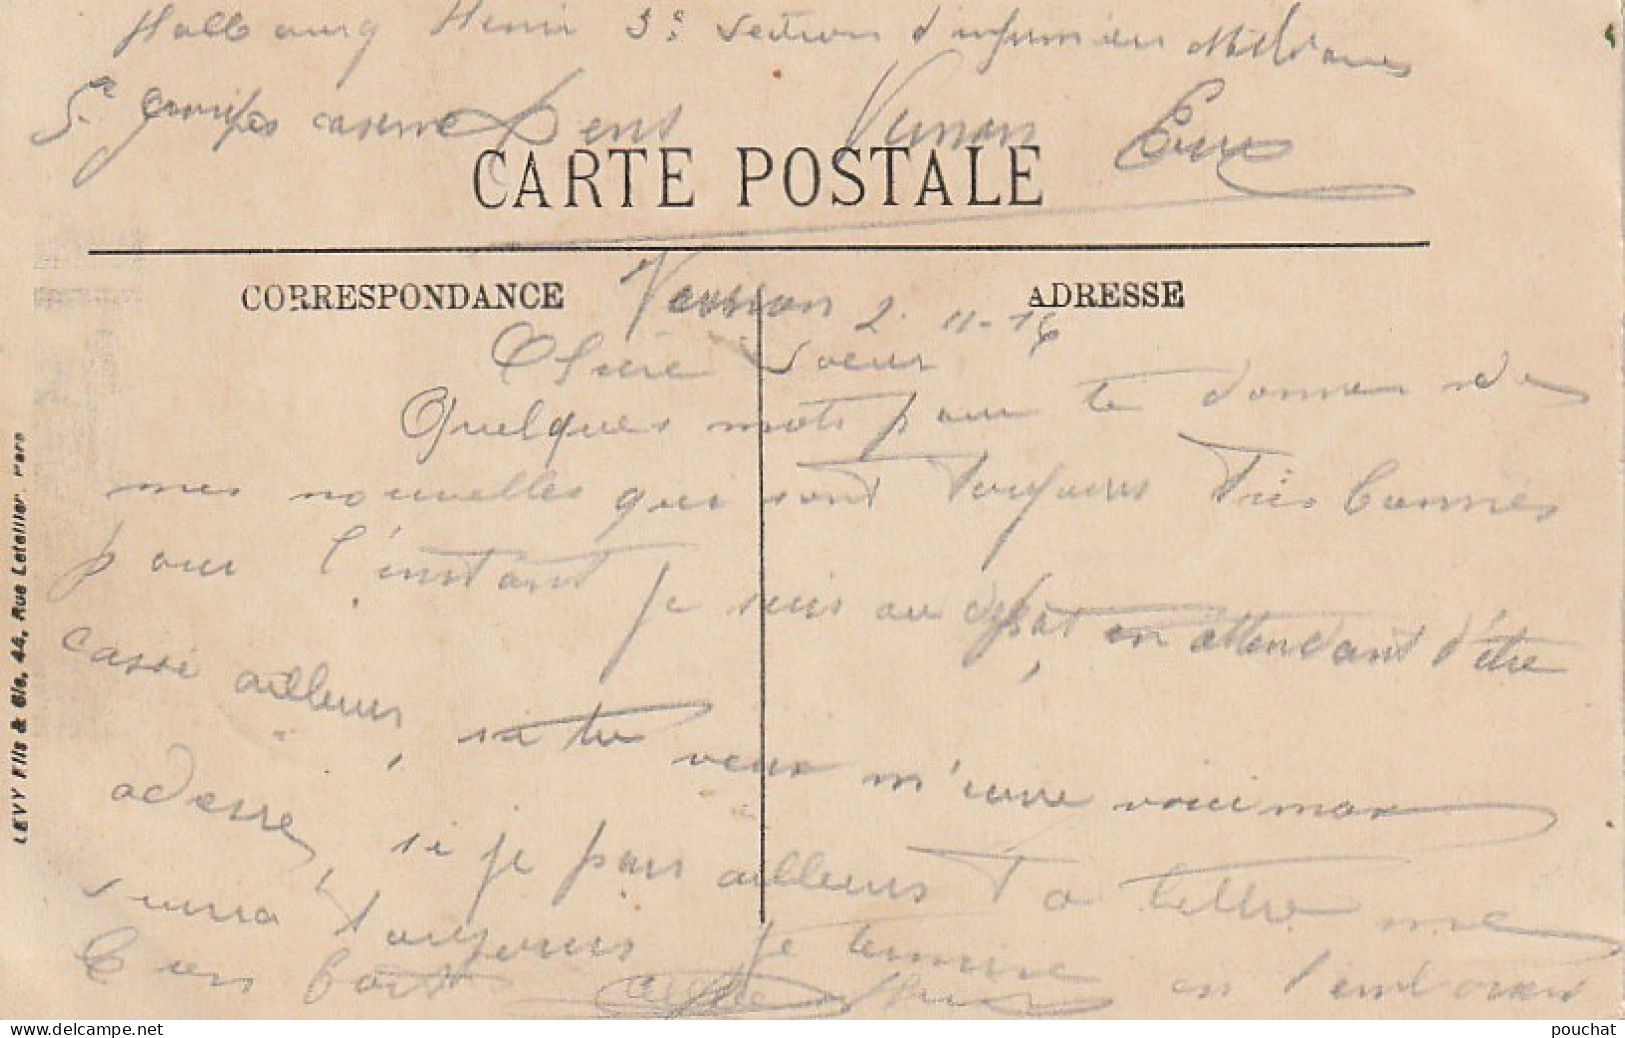 Henri 3e Section d'infirmiers Militaires
5e groupes caserne Sens Vernon Eure
CARTE POSTALE
CORRESPONDANCE
ADRESSE
Vernon 2-11-16
Chère Soeur
Quelques mots pour te donner de
mes nouvelles qui sont toujours Très bonnes
pour l'instant je suis au dépôt en attendant d'être
cassé ailleurs, si tu veux m'ecrire voici mon
adresse, si je pars ailleurs Ta lettre me
suivra toujours je termine en t'embrassant
bien fort
LEVY Fils & Cie, 44, Rue Letellier, Paris
pouchat